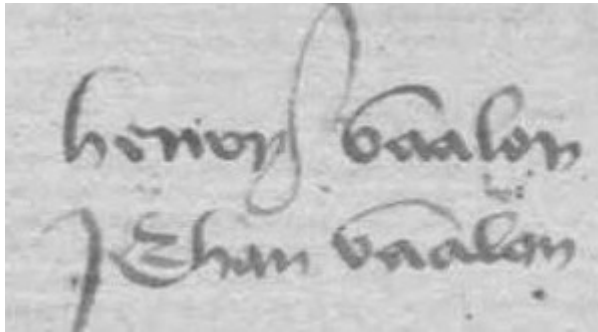 henry vaalon
Jehan vaalon